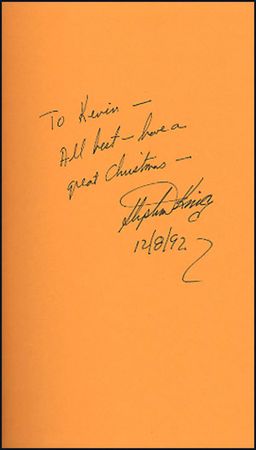 To Kevin —
All best — have a
great Christmas —
Stephen King
12/8/92